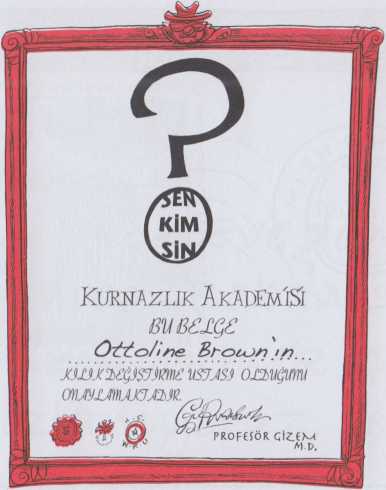 ?
SEN
KİM
SİN
KURNAZLIK AKADEMİSİ
BU BELGE
Ottoline Brown'ın...
KILIK DEĞİŞTİRME USTASI OLDUĞUNU
ONAYLAMAKTADIR.
PROFESÖR GİZEM
M.D.